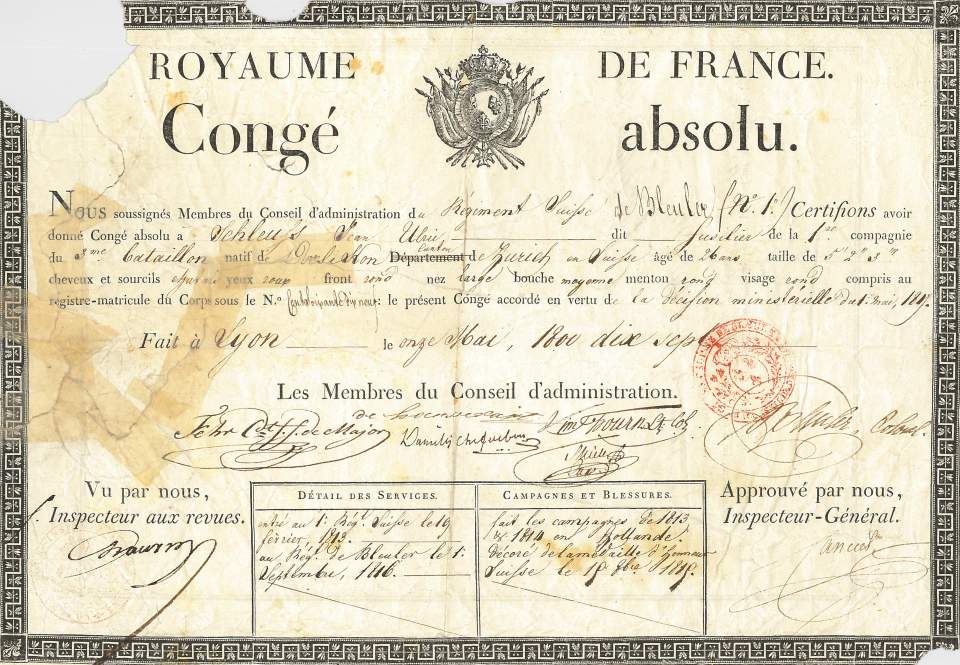 ROYAUME DE FRANCE.
Congé absolu.
Nous soussignés Membres du Conseil d'administration du Régiment Suisse de Bleuler (N.º 1.) Certifions avoir
donné Congé absolu a Schleuss Jean Ulric dit fusilier de la 1re compagnie
du 3me bataillon natif de Canton Département de Zurich en Suisse âgé de 26 ans taille de 5" 2" 3"
cheveux et sourcils yeux front rond nez large bouche moyenne menton rond visage rond compris au
régistre-matricule du Corps sous le N.º : le présent Congé accordé en vertu de la décision ministérielle du 1. mai, 1817.
Fait à Lyon le onze Mai, 1800 dix sept
Les Membres du Conseil d'administration.
Fehr Major
Colonel
Vu par nous,
Inspecteur aux revues.
DÉTAIL DES SERVICES.
entré au 1.r Rég.t Suisse le 19
février, 1813.
au Rég.t de Bleuler le 1.r
Septembre, 1816.
CAMPAGNES ET BLESSURES.
fait les campagnes de 1813
& 1814 en Hollande.
Décoré de la médaille d'honneur
Suisse le 1815.
Approuvé par nous,
Inspecteur-Général.